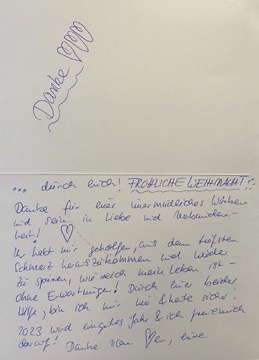 Danke
... durch euch! FRÖHLICHE WEIHNACHT!!
Danke für euer unermüdliches Wirken
und Sein in Liebe und Verbunden-
heit!
Ihr habt mir geholfen, aus dem tiefsten
Schmerz herauszukommen und wieder
zu spüren, wie reich mein Leben ist -
ohne Erwartungen! Durch eure beider
Hilfe, bin ich mir
2023 wird ein gutes Jahr & ich freue mich
darauf! Danke von eure